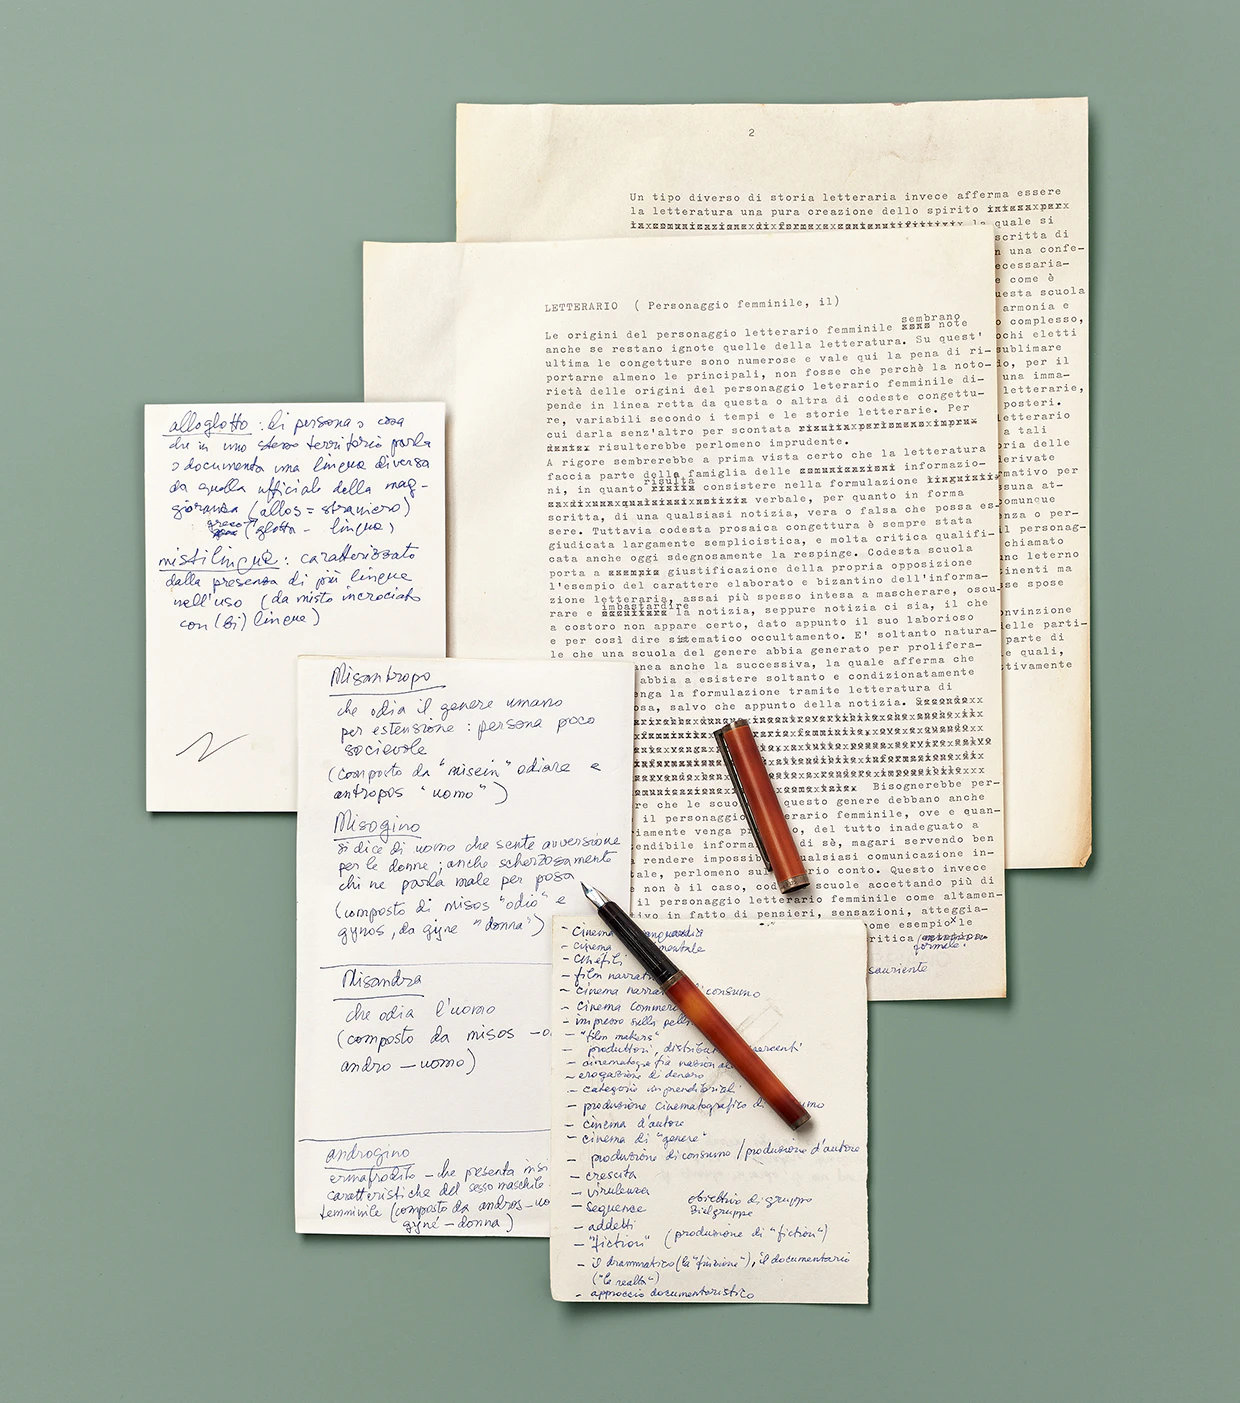 2
Un tipo diverso di storia letteraria invece afferma essere
la letteratura una pura creazione dello spirito
la quale si
scritta di
n una confe-
ecessaria-
e come è
uesta scuola
armonia e
o complesso,
ochi eletti
sublimare
do, per il
una imma-
letterarie,
posteri.
etterario
a tali
oria delle
derivate
mativo per
ssuna at-
comunque
nza o per-
il personag-
chiamato
uno leterno
tinenti ma
se spose
onvinzione
elle parti-
parte di
e quali,
tivamente
LETTERARIO ( Personaggio femminile, il)
sembrano
Le origini del personaggio letterario femminile note
anche se restano ignote quelle della letteratura. Su quest'
ultima le congetture sono numerose e vale qui la pena di ri-
portarne almeno le principali, non fosse che perchè la noto-
rietà delle origini del personaggio leterario femminile di-
pende in linea retta da questa o altra di codeste congettu-
re, variabili secondo i tempi e le storie letterarie. Per
cui darla senz'altro per scontata
risulterebbe perlomeno imprudente.
A rigore sembrerebbe a prima vista certo che la letteratura
faccia parte della famiglia delle informazio-
risulta
ni, in quanto consistere nella formulazione
verbale, per quanto in forma
scritta, di una qualsiasi notizia, vera o falsa che possa es-
sere. Tuttavia codesta prosaica congettura è sempre stata
giudicata largamente semplicistica, e molta critica qualifi-
cata anche oggi sdegnosamente la respinge. Codesta scuola
porta a giustificazione della propria opposizione
l'esempio del carattere elaborato e bizantino dell'informa-
zione letteraria, assai più spesso intesa a mascherare, oscu-
imbastardire
rare e la notizia, seppure notizia ci sia, il che
a costoro non appare certo, dato appunto il suo laborioso
e per così dire sistematico occultamento. E' soltanto natura-
le che una scuola del genere abbia generato per prolifera-
nea anche la successiva, la quale afferma che
abbia a esistere soltanto e condizionatamente
enga la formulazione tramite letteratura di
osa, salvo che appunto della notizia.
Bisognerebbe per-
re che le scuo questo genere debbano anche
il personaggio erario femminile, ove e quan-
iamente venga p o, del tutto inadeguato a
endibile informa di sè, magari servendo ben
rendere impossib ualsiasi comunicazione in-
tale, perlomeno su rio conto. Questo invece
non è il caso, cod scuole accettando più di
il personaggio letterario femminile come altamen-
tivo in fatto di pensieri, sensazioni, atteggia-
ome esempio le
critica
formale.
sauriente
alloglotto : di persona o cosa
che in uno stesso territorio parla
o documenta una lingua diversa
da quella ufficiale della mag-
gioranza (allos = straniero)
greco (glotta - lingua)
mistilingue : caratterizzato
dalla presenza di più lingue
nell'uso (da misto incrociato
con (bi) lingue)
Misantropo
che odia il genere umano
per estensione : persona poco
socievole
(composto da "misein" odiare e
antropos "uomo")
Misogino
si dice di uomo che sente avversione
per le donne ; anche scherzosamente
chi ne parla male per posa
(composto di misos "odio" e
gynos, da gyne "donna")
Misandra
che odia l'uomo
(composto da misos - o
andro - uomo)
androgino
ermafrodito - che presenta insi
caratteristiche del sesso maschile
femminile (composto da andros - uo
gyné - donna)
- cinema anguardia
- cinema mentale
- cinefili
- film narrati
- cinema narra di consumo
- cinema commer
- impresso sulla pell
- "film makers"
- produttori, distribu esercenti
- cinematografia nazional
- erogazione di denaro
- categorie imprenditoriali
- produzione cinematografica di sumo
- cinema d'autore
- cinema di "genere"
- produzione di consumo / produzione d'autore
- crescita
- virulenza
- sequence obiettivo di gruppo
zielgruppe
- addetti
- "fiction" (produzione di "fiction")
- il drammatico (la "finzione"), il documentario
("la realtà")
- approccio documentaristico